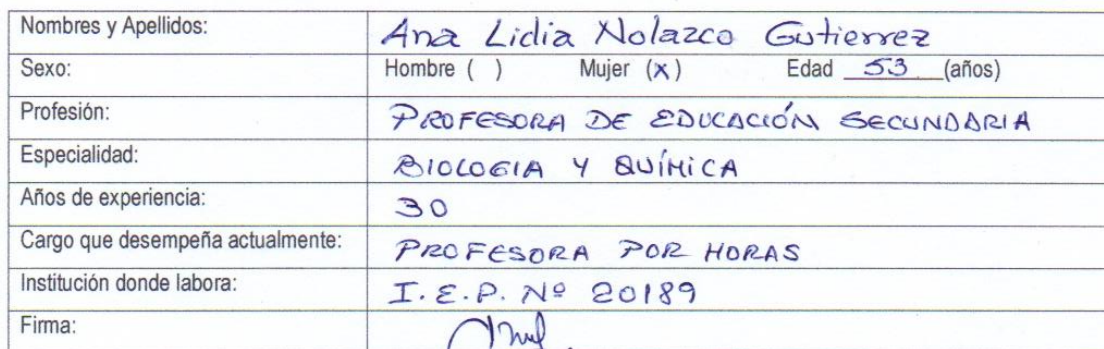 Nombres y Apellidos: Ana Lidia Nolazco Gutierrez
Sexo: Hombre ( ) Mujer (x) Edad 53 (años)
Profesión: PROFESORA DE EDUCACIÓN SECUNDARIA
Especialidad: BIOLOGIA Y QUÍMICA
Años de experiencia: 30
Cargo que desempeña actualmente: PROFESORA POR HORAS
Institución donde labora: I.E.P. Nº 20189
Firma: